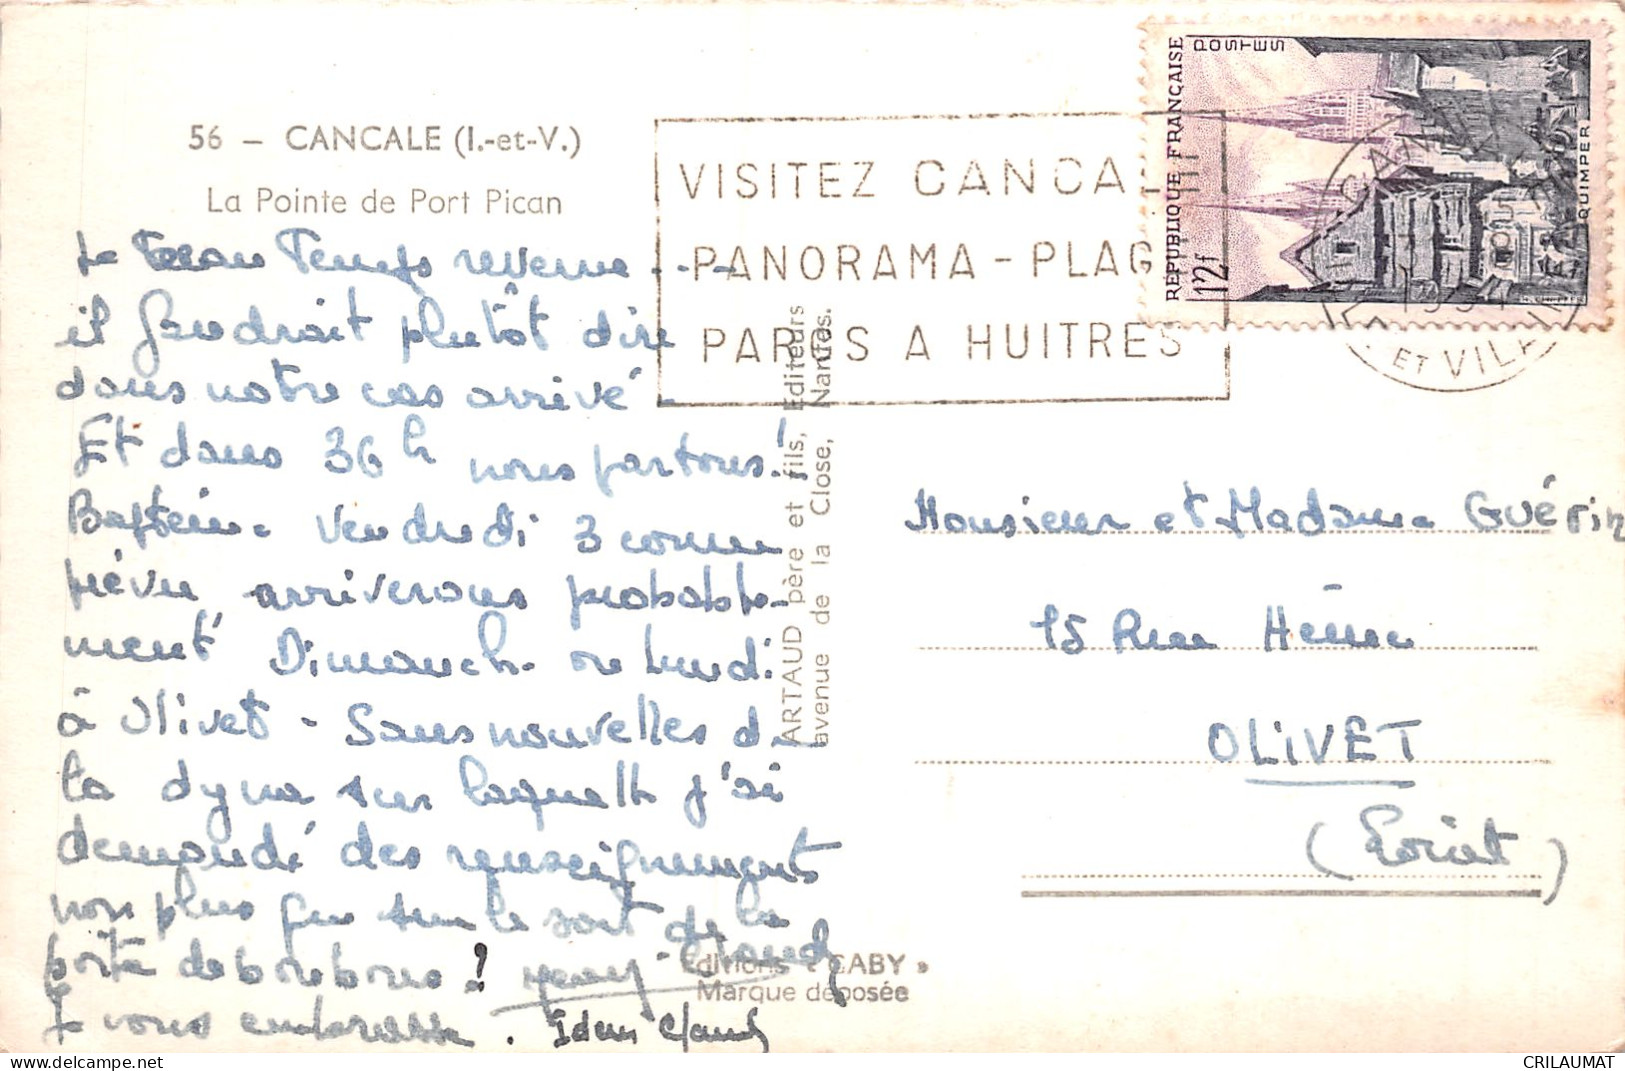 56 – CANCALE (I.-et-V.)
La Pointe de Port Pican
Le beau Temps revenu ...
il faudrait plutôt dire
dans notre cas arrivé -
Et dans 36 h nous partons !
Baptême Vendredi 3 comme
prévu arriverons probable-
ment Dimanche ou Lundi
à Olivet - Sans nouvelles de
la dyna sur laquelle j'ai
demandé des renseignements
non plus que sur le sort de la
boîte de bonbons !
Je vous embrasse . Idem Claude
VISITEZ CANCA
PANORMA - PLAG
PARCS A HUITRES
RÉPUBLIQUE FRANÇAISE
POSTES
12f
QUIMPER
1954
ET VILAINE
ARTAUD père et fils, Editeurs
avenue de la Close, Nantes.
Editions « GABY »
Marque déposée
Monsieur et Madame Guérin
15 Rue Hème
OLIVET
(Loiret)
CRILAUMAT